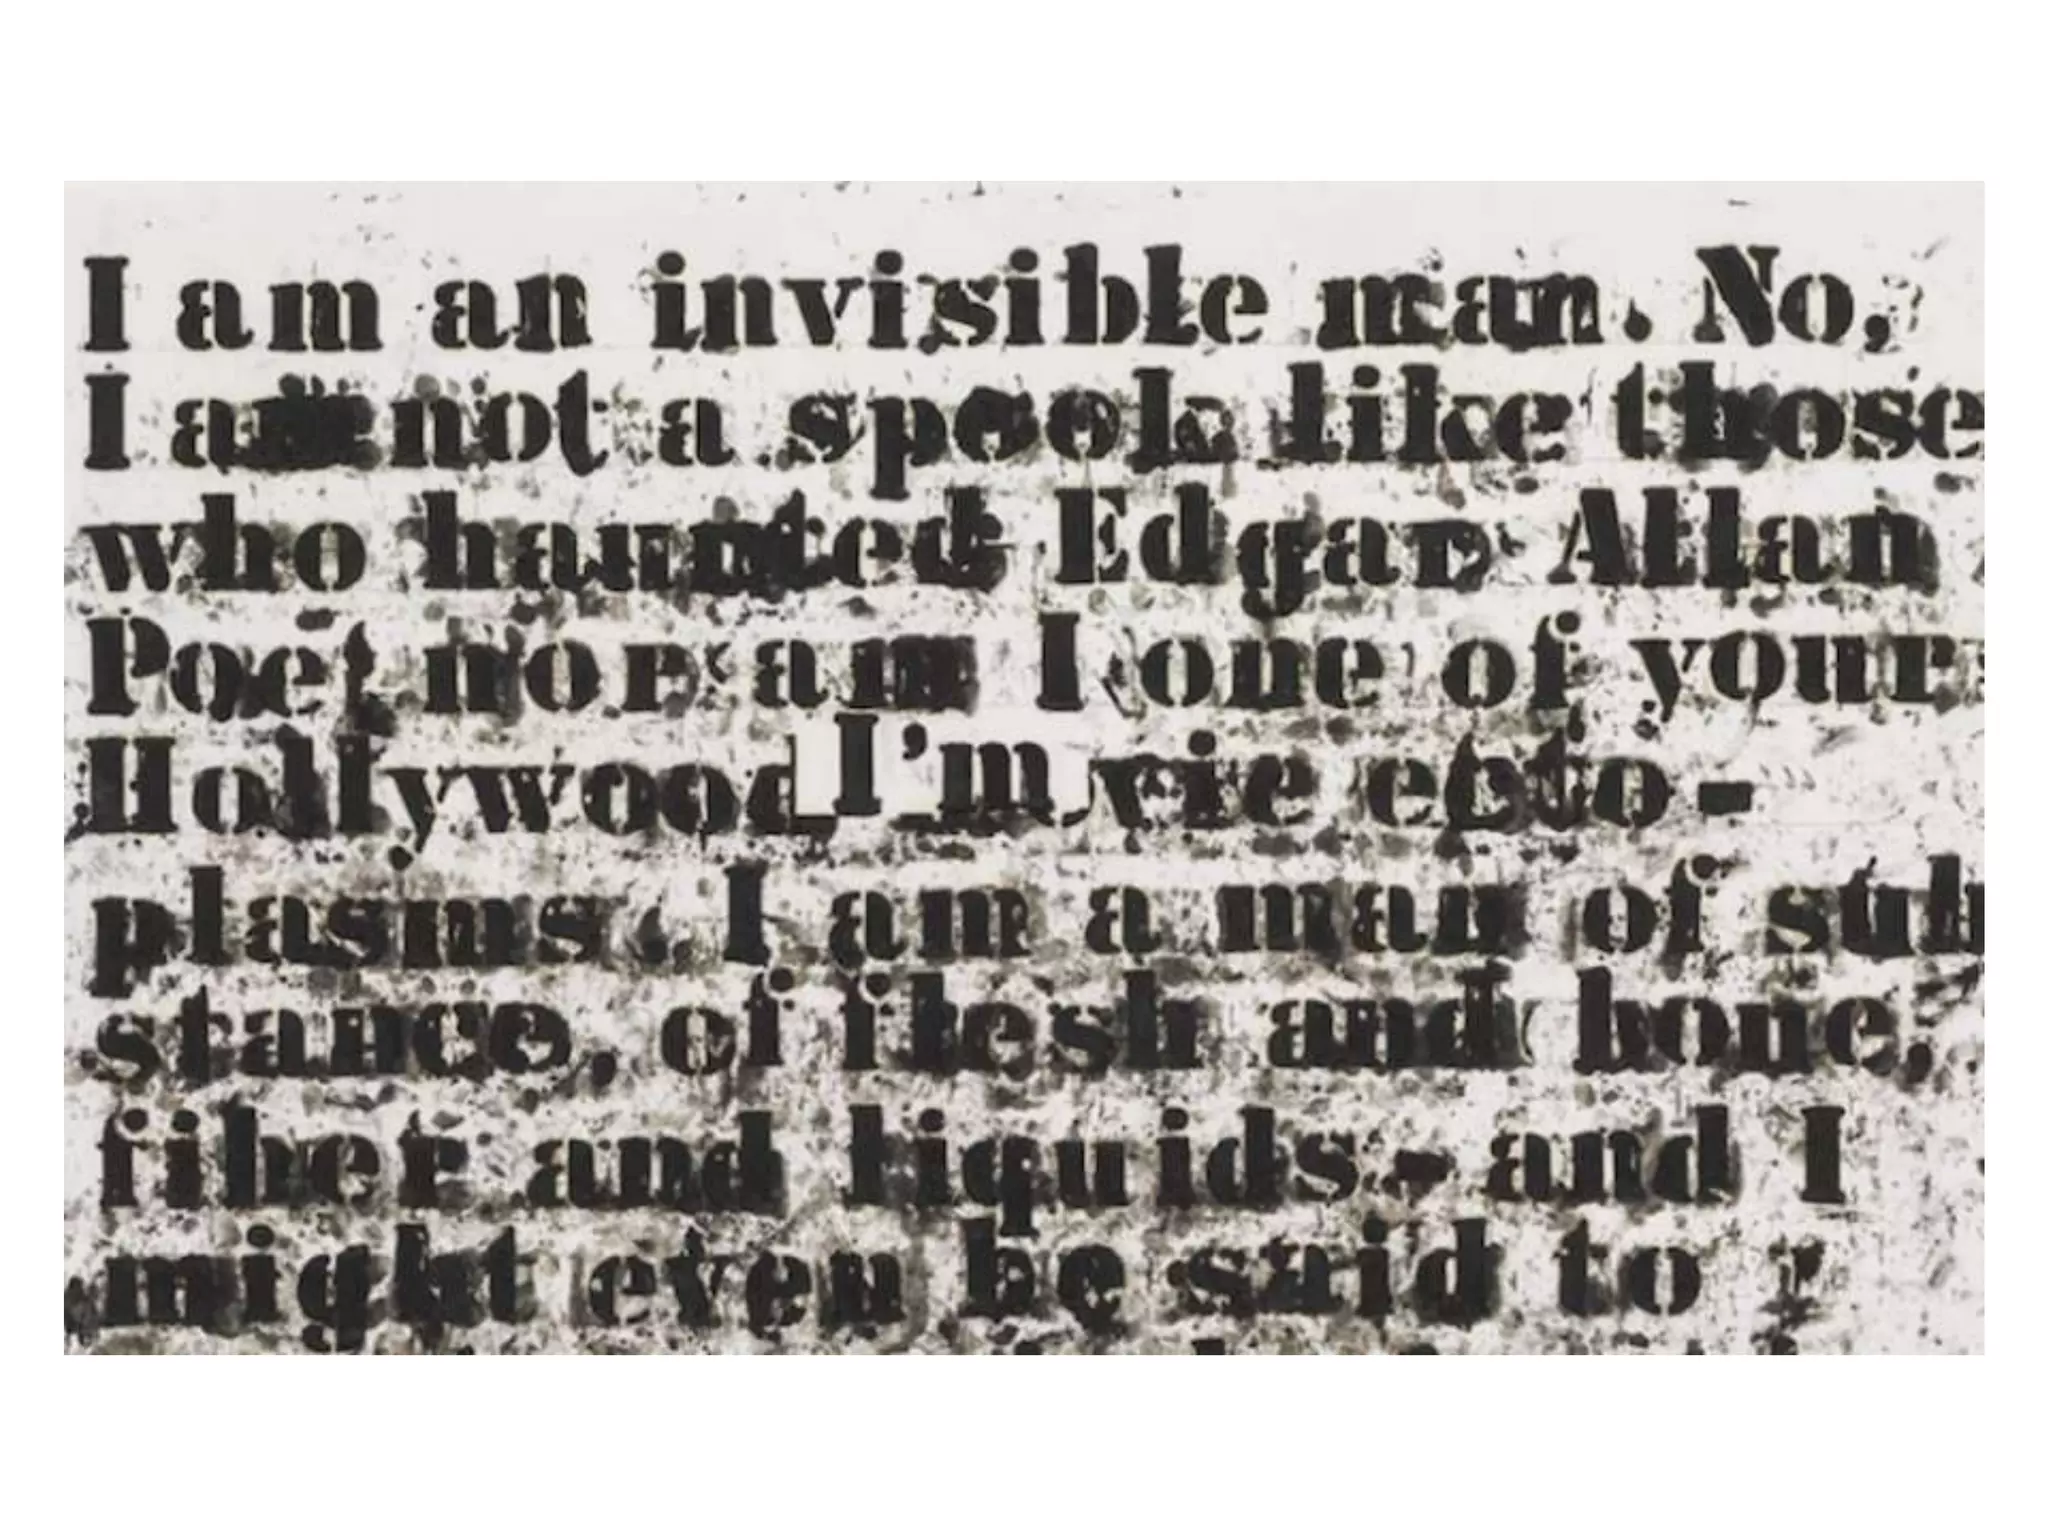 I am an invisible man. No,
I am not a spook like those
who haunted Edgar Allan
Poe, nor am I one of your
Hollywood I'm vie ecto-
plasms. I am a man of sub
stance, of flesh and bone,
fiber and liquids - and I
might even be said to